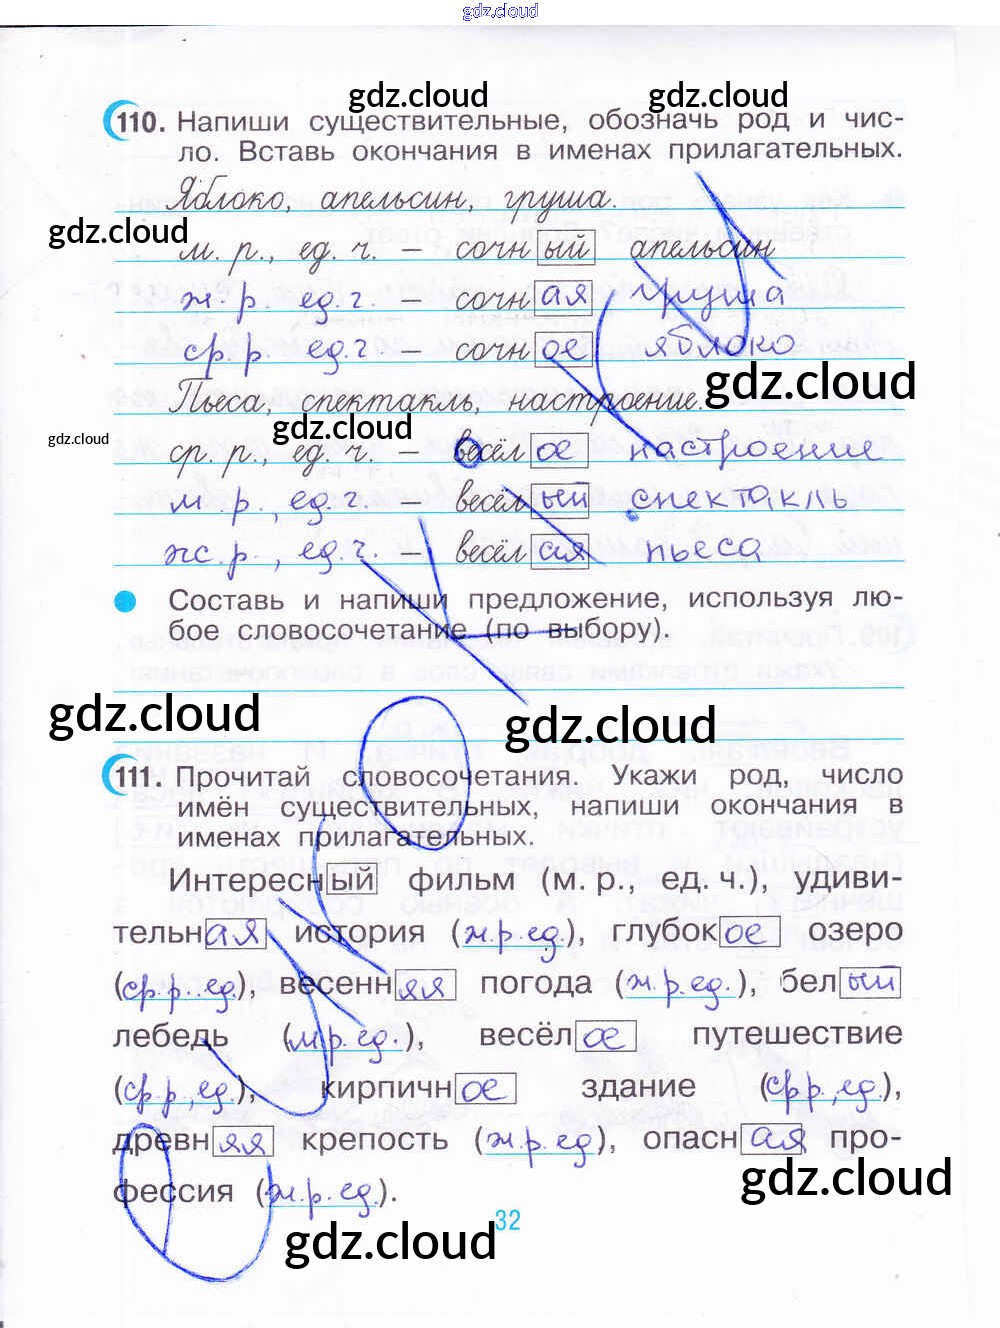 gdz.cloud
gdz.cloud gdz.cloud
110. Напиши существительные, обозначь род и чис-
ло. Вставь окончания в именах прилагательных.
Яблоко, апельсин, груша.
gdz.cloud
м. р., ед. ч. — сочный апельсин
ж. р. ед. ч. — сочная груша
ср. р. ед. ч — сочное яблоко
gdz.cloud
Пьеса, спектакль, настроение.
gdz.cloud gdz.cloud
ср. р., ед. ч. — весёлое настроение
м. р., ед. ч. — весёлый спектакль
ж. р., ед. ч. — весёлая пьеса
Составь и напиши предложение, используя лю-
бое словосочетание (по выбору).
gdz.cloud gdz.cloud
111. Прочитай словосочетания. Укажи род, число
имён существительных, напиши окончания в
именах прилагательных.
Интересный фильм (м. р., ед. ч.), удиви-
тельная история (ж.р.ед.), глубокое озеро
(ср.р..ед.), весенняя погода (ж.р.ед.), белый
лебедь (м.р.ед.), весёлое путешествие
(ср.р,ед.), кирпичное здание (ср.р.,ед.),
древняя крепость (ж.р.ед), опасная про-
фессия (ж.р.ед.).
gdz.cloud
32
gdz.cloud